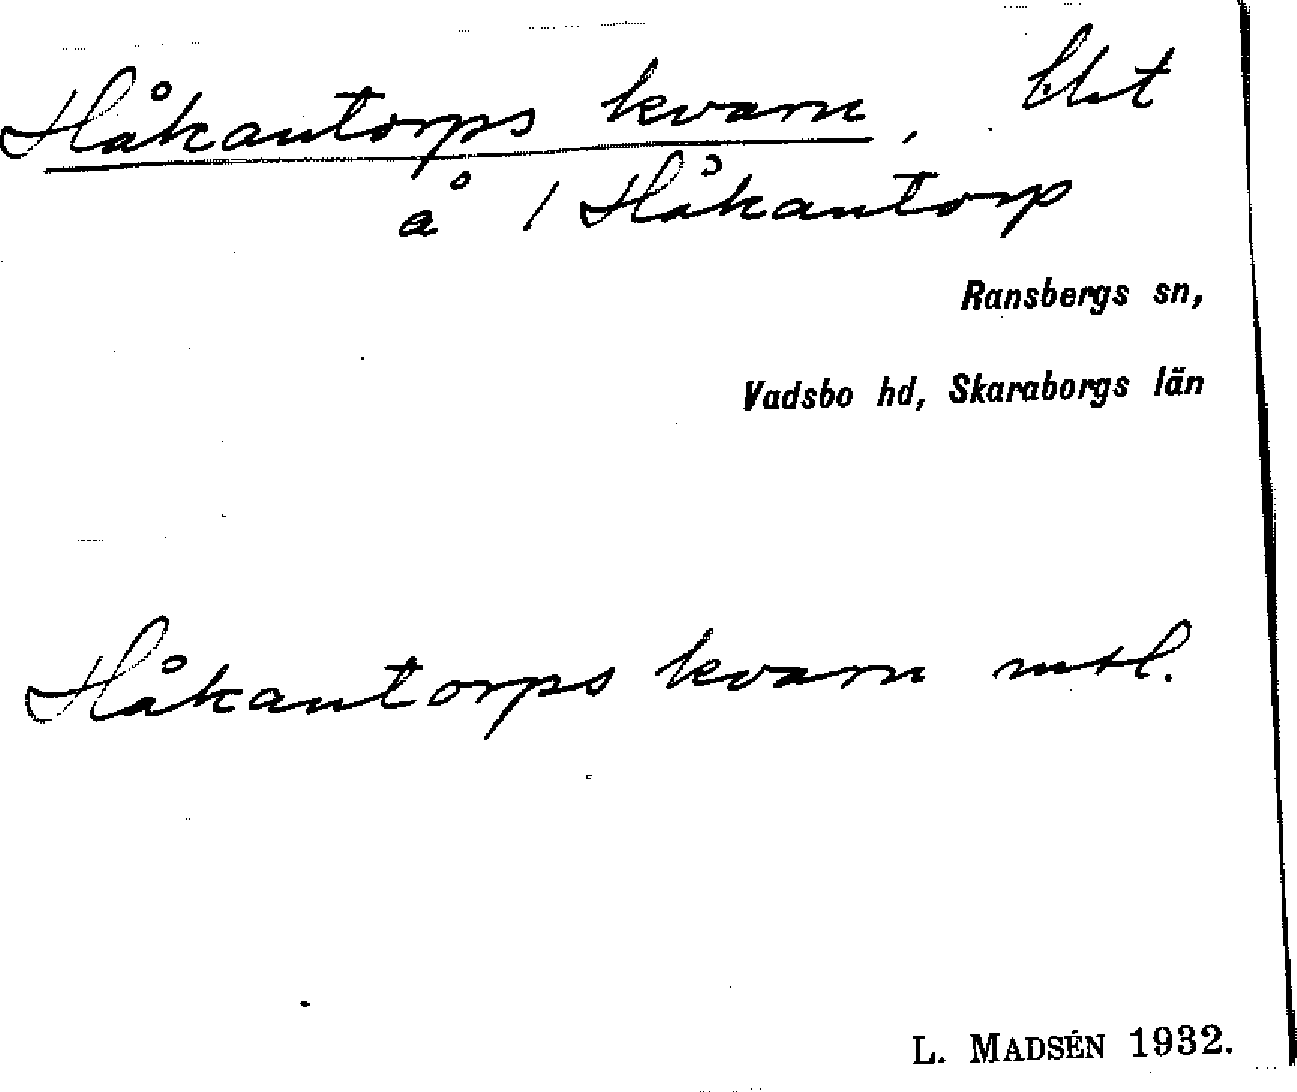 Håkantorps kvarn, bbt
å 1 Håkantorp
Ransbergs sn,
Vadsbo hd, Skaraborgs län
Håkantorps kvarn mtl.
L. MADSÉN 1932.